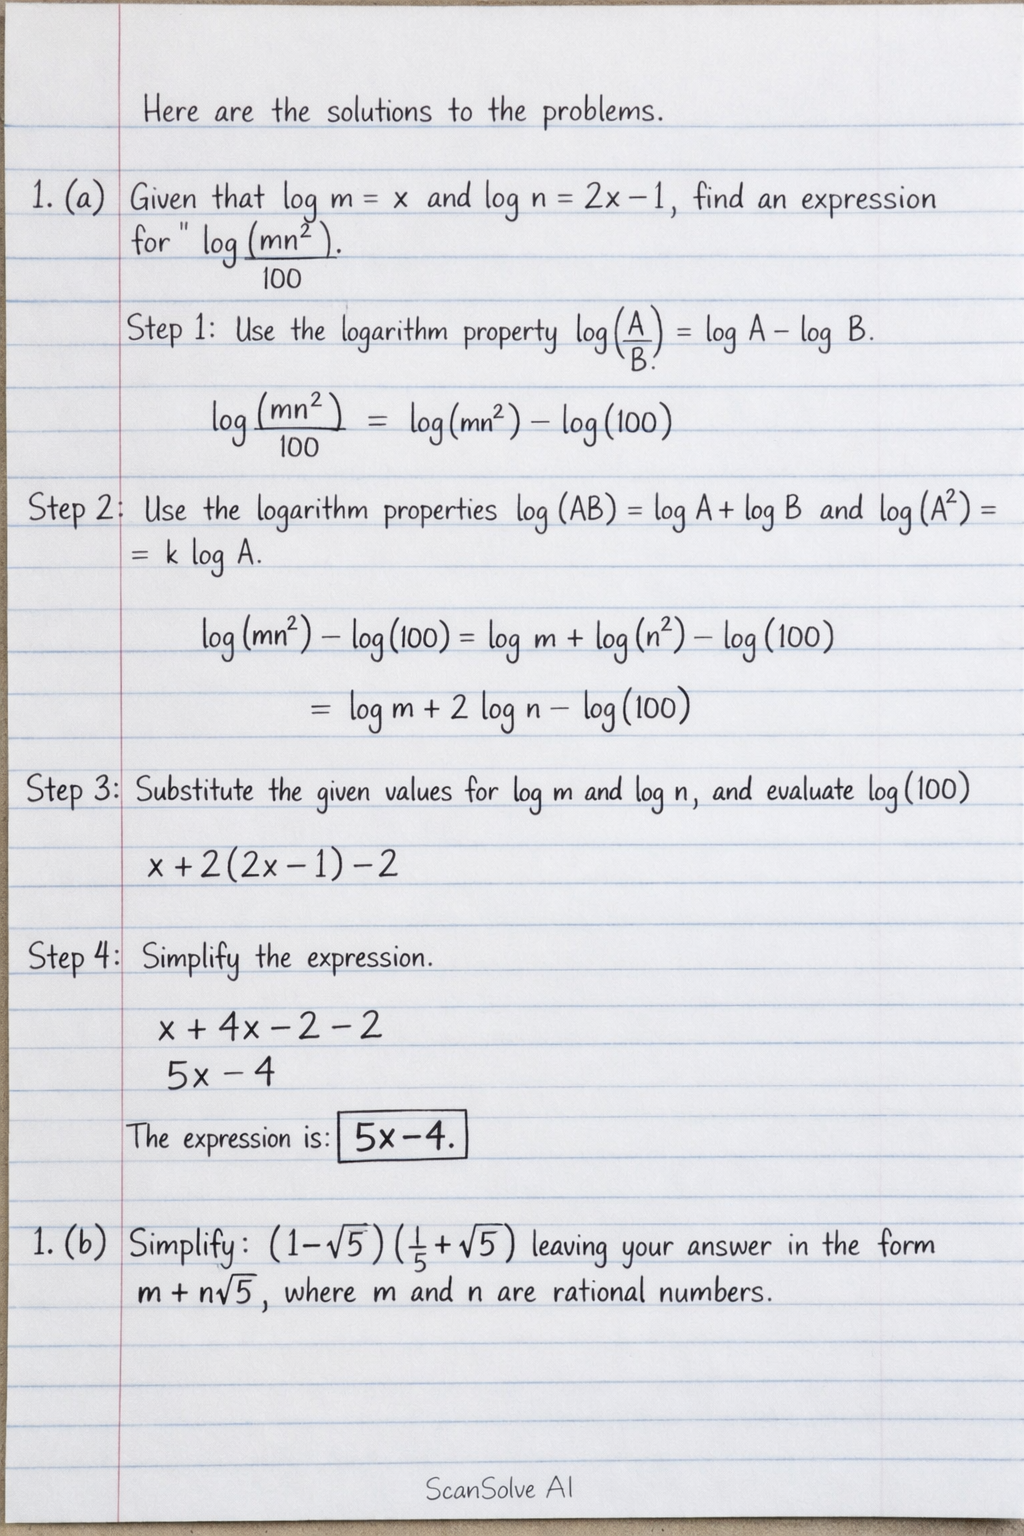 Here are the solutions to the problems.
1. (a) Given that log m = x and log n = 2x − 1, find an expression
for " log (mn²).
100
Step 1: Use the logarithm property log(A/B.) = log A − log B.
log (mn²)/100 = log(mn²) − log(100)
Step 2: Use the logarithm properties log (AB) = log A + log B and log(A²) =
= k log A.
log(mn²) − log(100) = log m + log(n²) − log(100)
= log m + 2 log n − log(100)
Step 3: Substitute the given values for log m and log n, and evaluate log(100)
x + 2(2x − 1) − 2
Step 4: Simplify the expression.
x + 4x − 2 − 2
5x − 4
The expression is: 5x − 4.
1. (b) Simplify: (1−√5)(1/5 + √5) leaving your answer in the form
m + n√5, where m and n are rational numbers.
ScanSolve AI